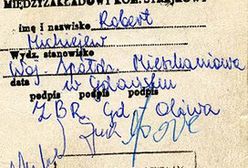 MIĘDZYZAKŁADOWY KOM. STRAJKOWY
imię i nazwisko Robert
Michielew
Wydz. stanowisko
Woj. Spółdz. Mieszkaniowa
data w Gdańsku
podpis podpis podpis
ZBR. Gd Oliwa